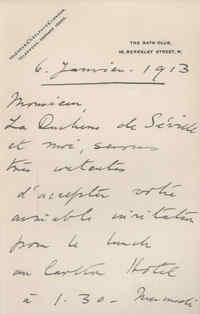 THE BATH CLUB,
16, BERKELEY STREET, W.
6. Janvier. 1913
Monsieur,
La Duchesse de Séville
et moi, serons
très contentes
d'accepter votre
aimable invitation
pour le lunch
au Carlton Hotel
à 1.30 —